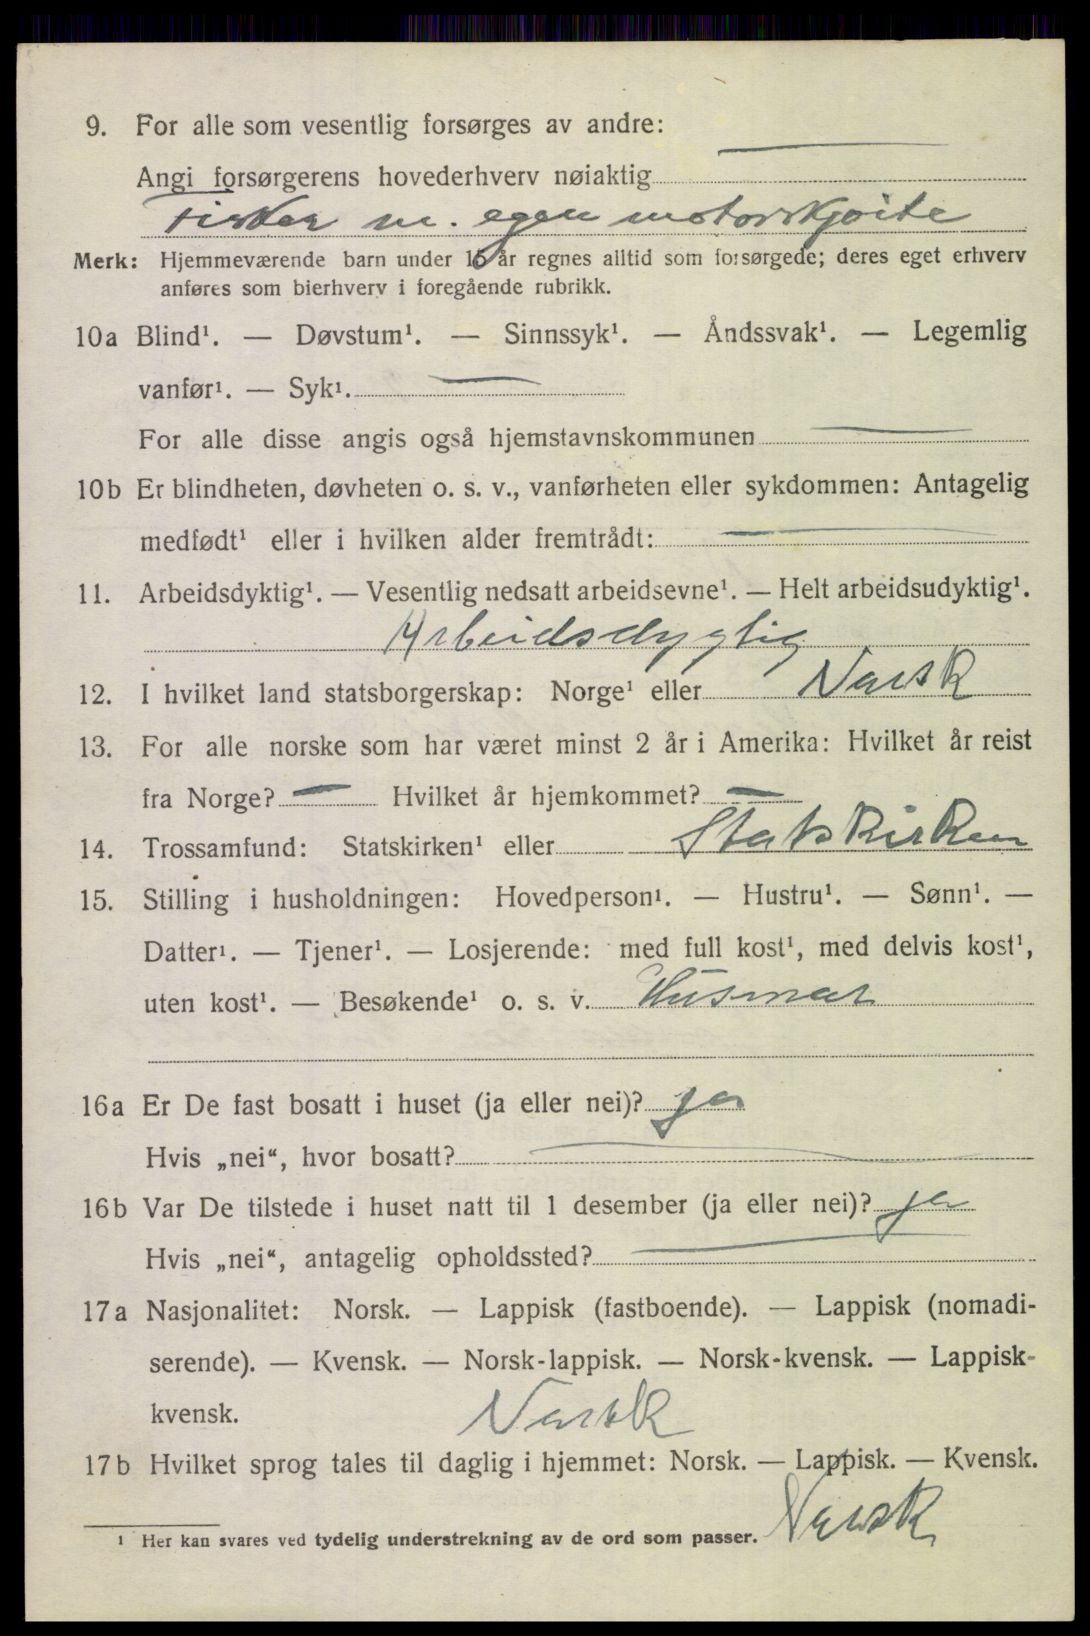 9. For alle som vesentlig forsørges av andre:
Angi forsørgerens hovederhverv nøiaktig
Fisker m. egen motorskjøite
Merk: Hjemmeværende barn under 15 år regnes alltid som forsørgede; deres eget erhverv
anføres som bierhverv i foregående rubrikk.
10a Blind¹. — Døvstum¹. — Sinnssyk¹. — Åndssvak¹. — Legemlig
vanfør¹. — Syk¹.
For alle disse angis også hjemstavnskommunen
10b Er blindheten, døvheten o. s. v., vanførheten eller sykdommen: Antagelig
medfødt¹ eller i hvilken alder fremtrådt:
11. Arbeidsdyktig¹. — Vesentlig nedsatt arbeidsevne¹. — Helt arbeidsudyktig¹.
Arbeidsdygtig
12. I hvilket land statsborgerskap: Norge¹ eller Norsk
13. For alle norske som har været minst 2 år i Amerika: Hvilket år reist
fra Norge? — Hvilket år hjemkommet? —
14. Trossamfund: Statskirken¹ eller Statskirken
15. Stilling i husholdningen: Hovedperson¹. — Hustru¹. — Sønn¹. —
Datter¹. — Tjener¹. — Losjerende: med full kost¹, med delvis kost¹,
uten kost¹. — Besøkende¹ o. s. v. Husmor
16a Er De fast bosatt i huset (ja eller nei)? ja
Hvis „nei“, hvor bosatt?
16b Var De tilstede i huset natt til 1 desember (ja eller nei)? ja
Hvis „nei“, antagelig opholdssted?
17a Nasjonalitet: Norsk. — Lappisk (fastboende). — Lappisk (nomadi-
serende). — Kvensk. — Norsk-lappisk. — Norsk-kvensk. — Lappisk-
kvensk. Norsk
17b Hvilket sprog tales til daglig i hjemmet: Norsk. — Lappisk. — Kvensk.
Norsk
¹ Her kan svares ved tydelig understrekning av de ord som passer.